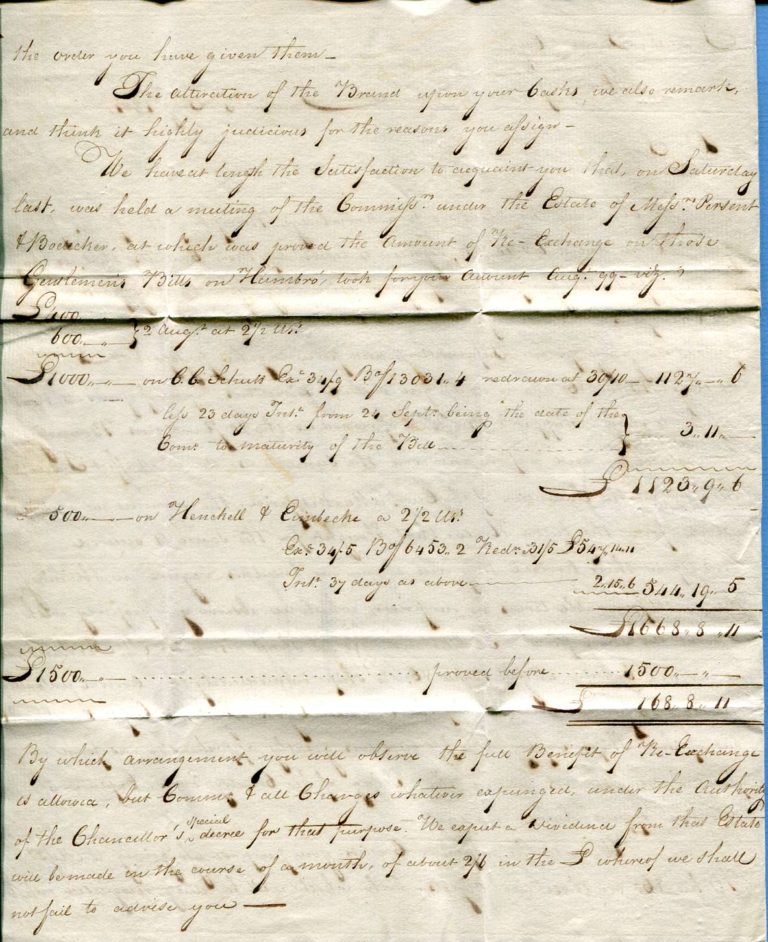 the order you have given them —
The alteration of the Brand upon your Casks we also remark,
and think it highly judicious for the reasons you assign —
We have at length the Satisfaction to acquaint you that, on Saturday
last, was held a meeting of the Commissrs under the Estate of Messrs Persent
& Bodecker, at which was proved the Amount of Re-Exchange on those
Gentlemen's Bills on Hambro', took for your Account Augt 99 – viz.
£400 „ – „ –
600 „ – „ – } 2 Augt at 2 1/2 Us.
£1000 „ – „ – on C. C. Schutt Exe 34/9 Bco/ 13031 „ 4 redrawn at 30/10 — 1127 „ – „ 6
less 23 days Intt from 24 Septr being the date of the
Comn to maturity of the Bill } 3 „ 11 „ –
£ 1123 „ 9 „ 6
£ 500 „ – — on Henckell & Eimbecke a 2 1/2 Us.
Exe 34/5 Bco/ 6453 „ 2 Redn 31/5 £547 „ 14 „ 11
Intt 37 days as above — 2 „ 15 „ 6 544 „ 19 „ 5
£1668 „ 8 „ 11
£1500 „ – „ – ........ proved before ........ 1500 „ – „ –
£ 168 „ 8 „ 11
By which arrangement you will observe the full Benefit of Re-Exchange
is allowed, but Commn & all Charges whatever expunged, under the Authority
of the Chancellor's special decree for that purpose. We expect a Dividend from that Estate
will be made in the course of a month, of about 2/6 in the £ whereof we shall
not fail to advise you —